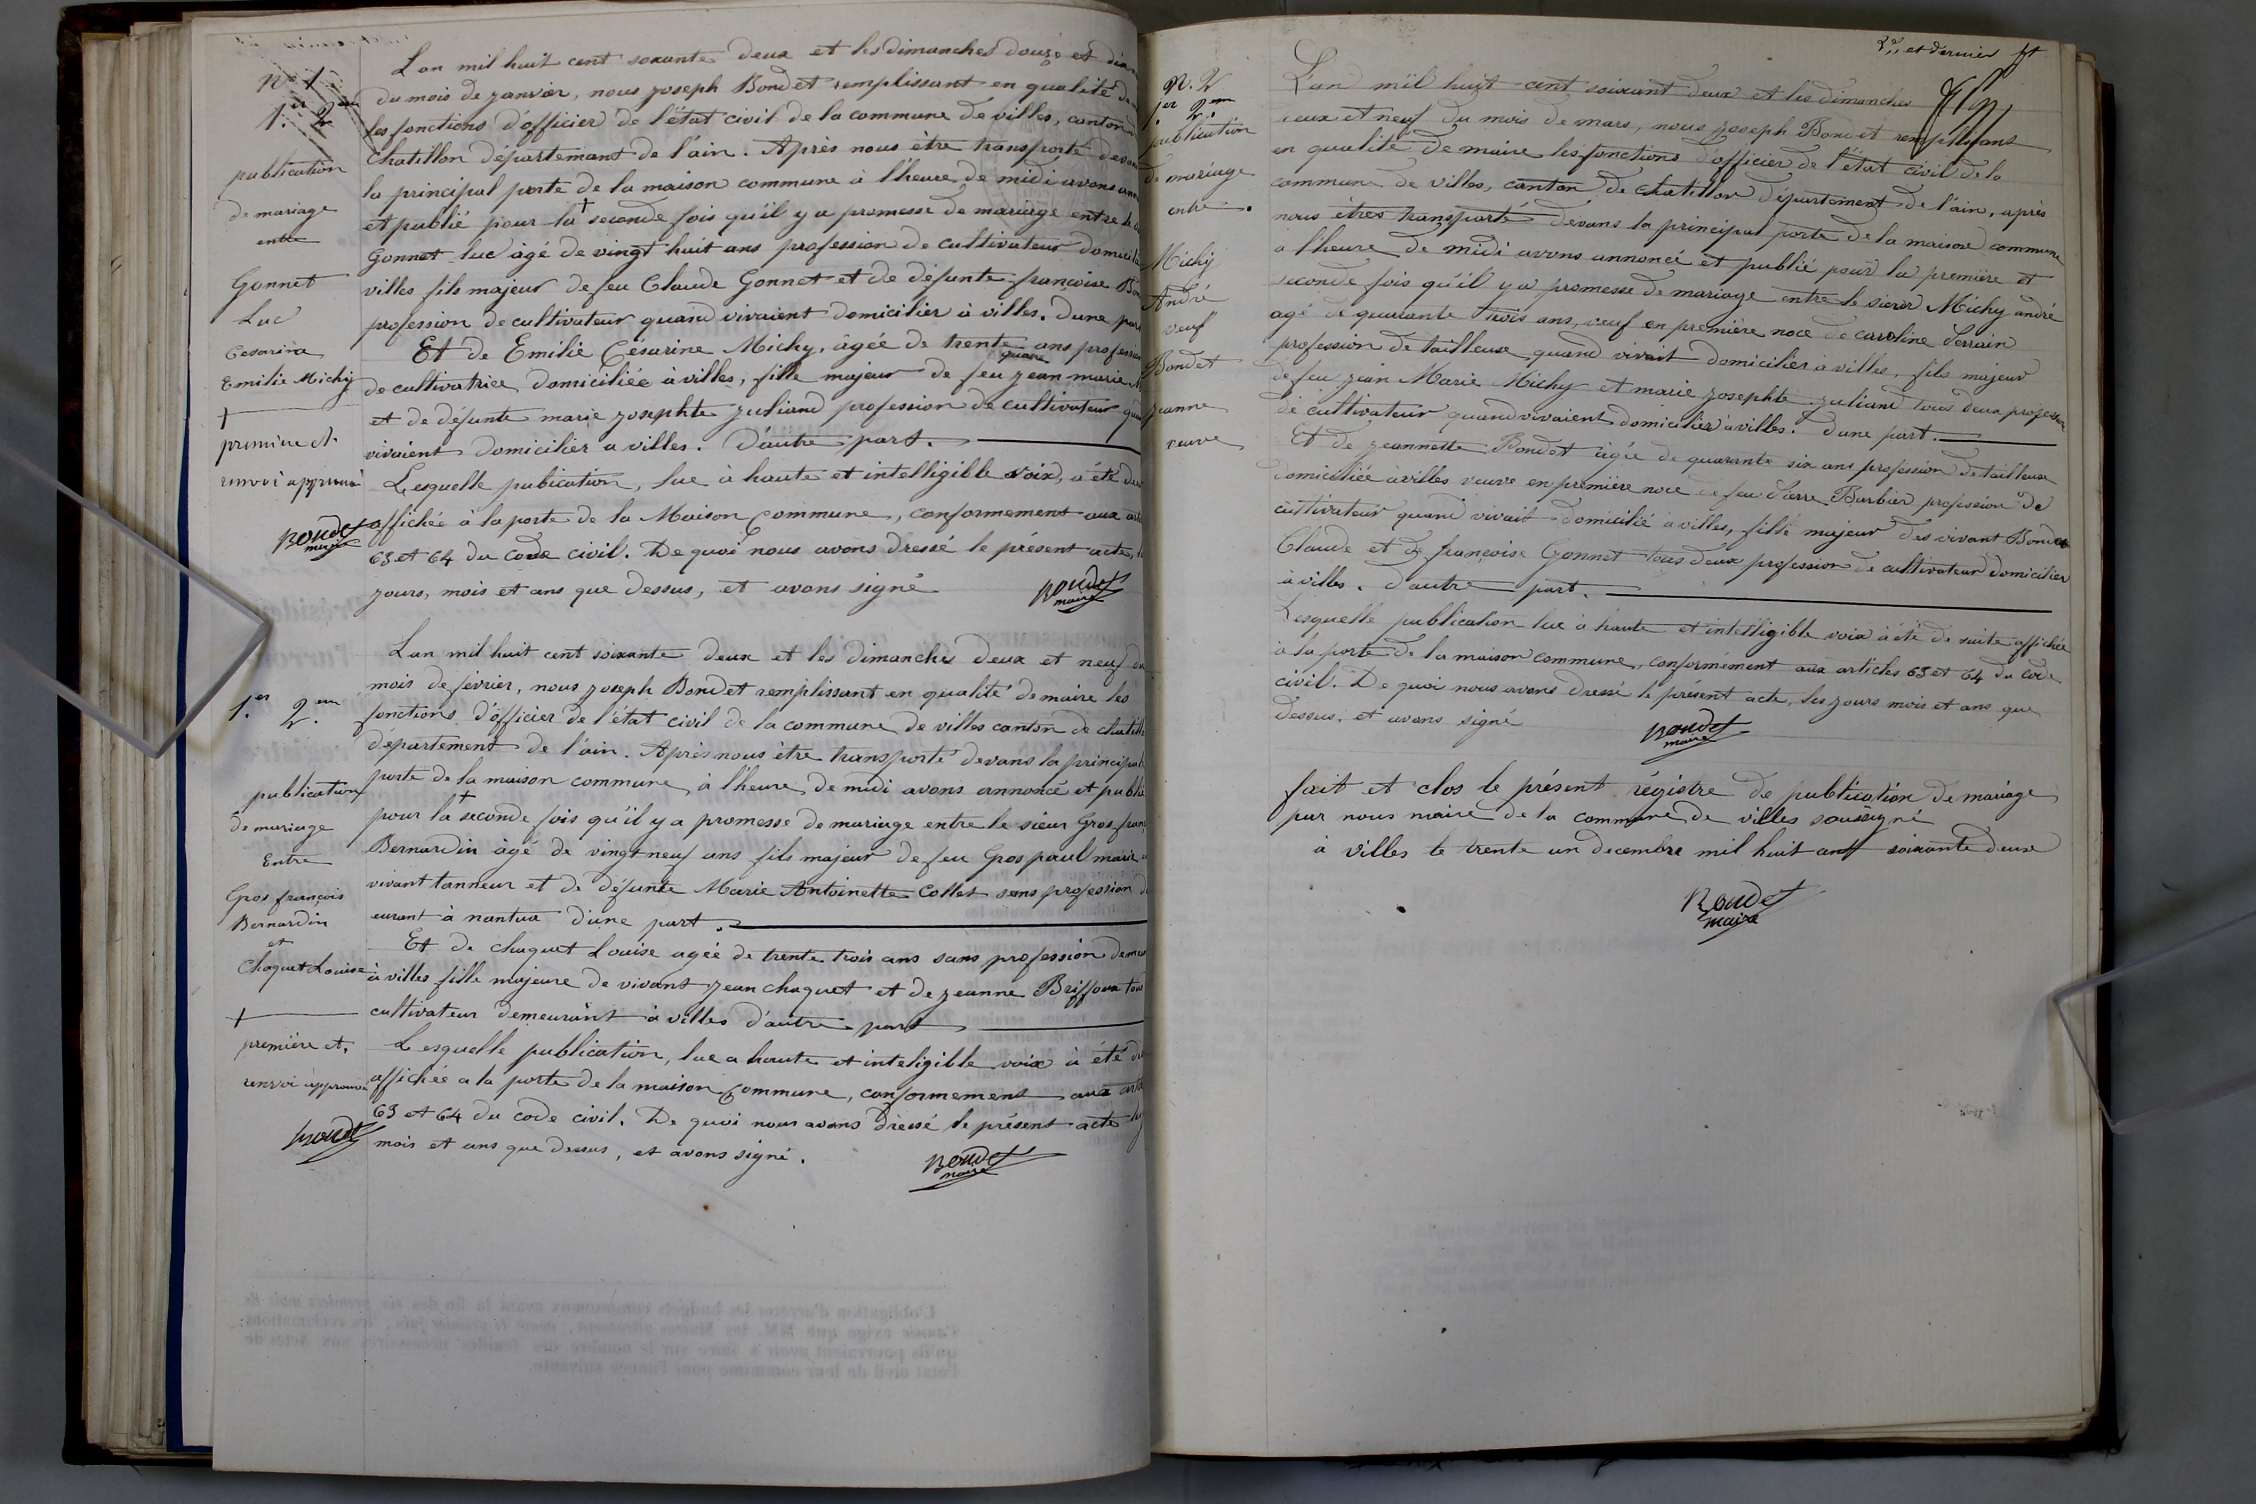 N° 1
1.er 2.eme
publication
de mariage
entre
Gonnet
Luc
Cesarina
Emilie Michy
†
première et
renvoi approuvé
Bondet
maire
L'an mil huit cent soixante deux et les dimanches douze et dix
du mois de janvier, nous joseph Bondet remplissant en qualité de
les fonctions d'officier de l'état civil de la commune de villes, canton de
chatillon département de l'ain. Après nous être transporté devans
la principal porte de la maison commune à l'heure de midi avons ann
et publié pour la † seconde fois qu'il y a promesse de mariage entre le
Gonnet luc âgé de vingt huit ans profession de cultivateur domicilié
villes fils majeur de feu Claude Gonnet et de défunte françoise Bon
profession de cultivateur quand vivaient domicilier à villes. d'une part
Et de Emilie Césarine Michy, âgée de trente quatre ans profession
de cultivatrice domiciliée à villes, fille majeur de feu jean marie M
et de défunte marie josephte juliand profession de cultivateur quand
vivaient domicilier a villes. D'autre part.
Lesquelle pubication, lue à haute et intelligible voix, a été de
affichée à la porte de la Maison Commune, conformement aux arti
63 et 64 du code civil. De quoi nous avons dressé le présent acte,
jours, mois et ans que dessus, et avons signé
Bondet
maire
1.er 2.eme
publication
de mariage
Entre
Gros françois
Bernardin
et
Chaquet Louise
†
première et.
renvoi approuvé
Bondet
L'an mil huit cent soixante deux et les dimanches deux et neuf du
mois de fevrier, nous joseph Bondet remplissant en qualité de maire les
fonctions d'officier de l'état civil de la commune de villes canton de chatill
département de l'ain. Après nous être transporté devans la principale
porte de la maison commune, à l'heure de midi avons annoncé et publié
pour la † seconde fois qu'il y a promesse de mariage entre le sieur Gros fran
Bernardin âgé de vingt neuf ans fils majeur de feu Gros paul marie
vivant tanneur et de défunte Marie Antoinette Collet sans profession de
eurant à nantua d'une part.
Et de chaquet Louise agée de trente trois ans sans profession demeu
à villes fille majeure de vivant jean chaquet et de jeanne Briffoux tou
cultivateur demeurant à villes d'autre part
Lesquelle publication, lue a haute et inteligible voix à été de
affichée a la porte de la maison Commune, conformement aux arti
63 et 64 du code civil. De quoi nous avons dressé le présent acte les
mois et ans que dessus, et avons signé.
Bondet
maire
2.e et dernier ft
N. 2
1er 2.eme
publication
de mariage
entre.
Michy
André
veuf
Bondet
jeanne
veuve
L'an mil huit cent soixant deux et les dimanches
deux et neuf du mois de mars, nous joseph Bondet remplissans
en qualité de maire les fonctions d'officier de l'état civil de la
commune de villes, canton de chatillon département de l'ain, après
nous êtres transporté devans la principal porte de la maison commune
a lheure de midi avons annoncé et publié pour la première et
seconde fois qu'il y a promesse de mariage entre le sieur Michy andré
agé de quarante trois ans, veuf en première noce de caroline Serrain
profession de tailleuse quand vivait domicilier à villes, fils majeur
de feu jean Marie Michy et marie josephte juliand tous deux profession
de cultivateur quand vivaient domicilier à villes. d'une part.
Et de jeannette Bondet agée de quarante six ans profession de tailleuse
domiciliée à villes veuve en première noce de feu Pierre Barbier profession de
cultivateur quand vivait domicilié à villes, fille majeur des vivant Bondet
Claude et de françoise Gonnet tous deux profession de cultivateur domicilier
à villes. D'autre part.
Lesquelle publication lue à haute et intelligible voix à été de suite affichée
à la porte de la maison commune, conformément aux articles 63 et 64 du code
civil. De quoi nous avons dressé le présent acte, les jours mois et ans que
dessus, et avons signé
Bondet
maire
fait et clos le présent régistre de publication de mariage
par nous maire de la commune de villes soussigné
à villes le trente un decembre mil huit cent soixante deux
Bondet
maire